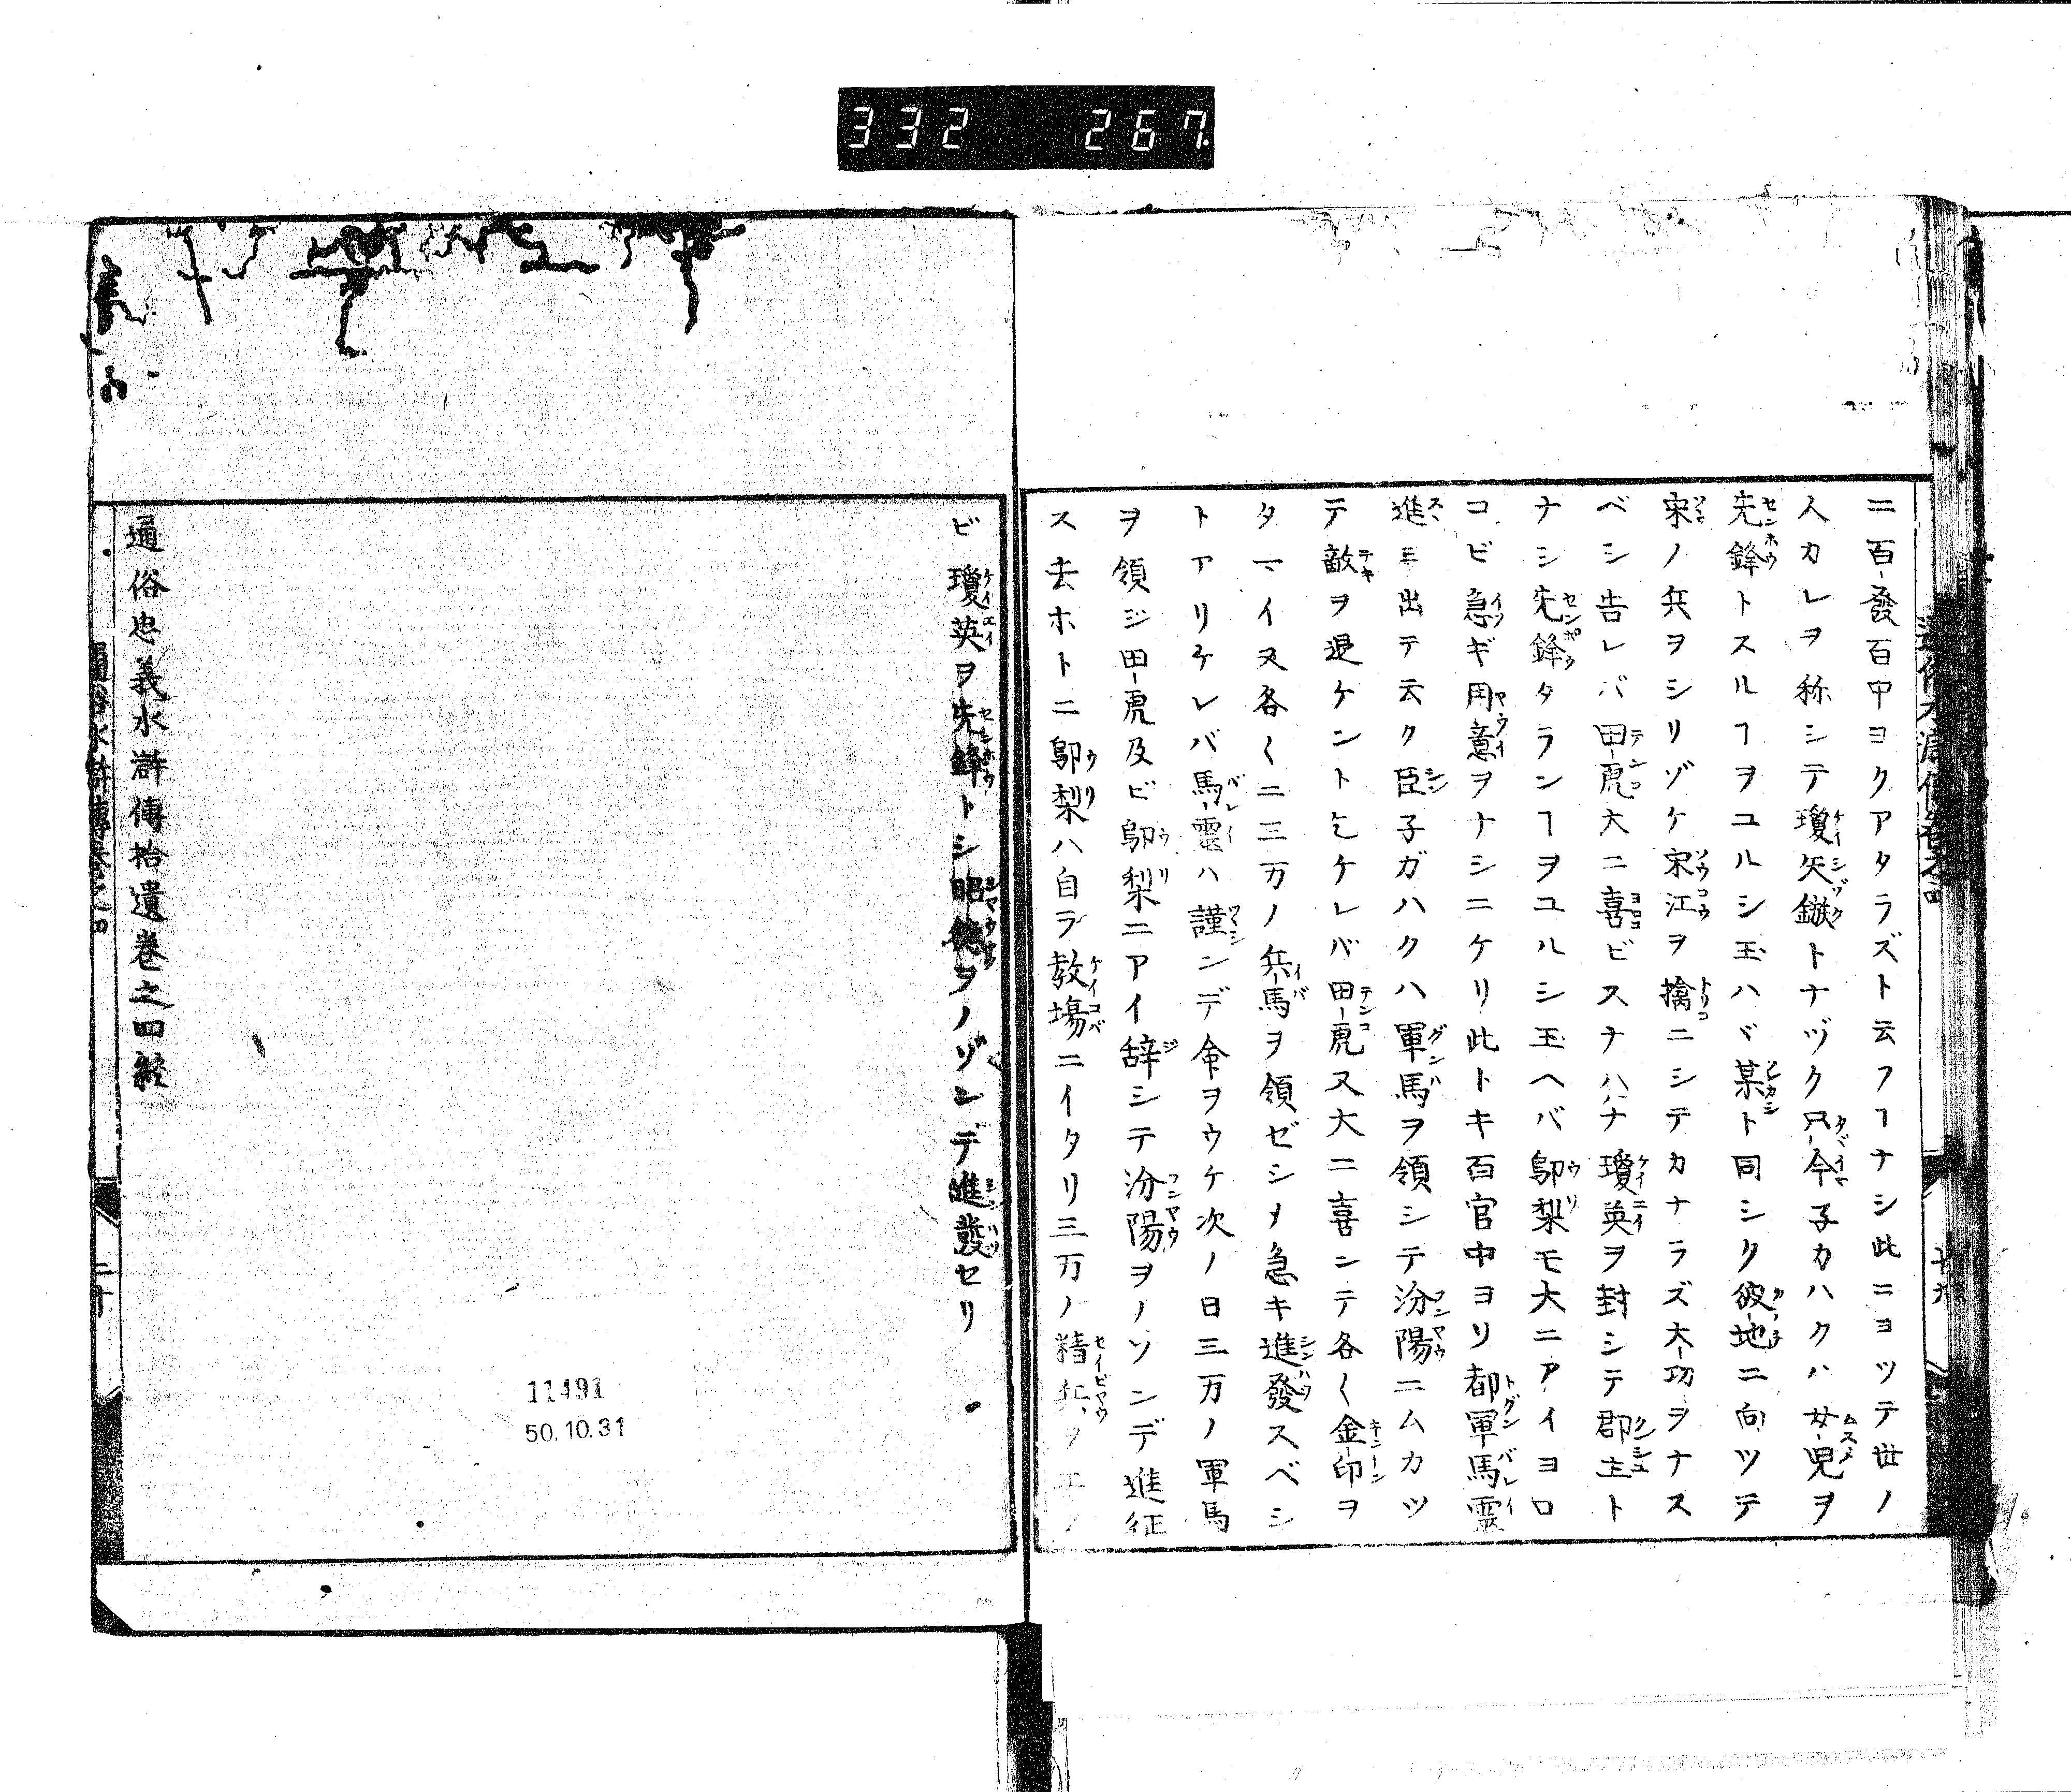 332 267
ニ百發百中ヨクアタラズト云フヿナシ此ニヨツテ世ノ
人カレヲ称シテ瓊矢鏃トナヅク只今子カハクハ女児ヲ
先鋒トスルヿヲユルシ玉ハヾ某ト同シク彼地ニ向ツテ
宋ノ兵ヲシリゾケ宋江ヲ擒ニシテカナラズ大功ヲナス
ベシ告レバ田虎大ニ喜ビスナハハナ瓊英ヲ封シテ郡主ト
ナシ先鋒タランヿヲユルシ玉ヘバ鄔梨モ大ニアイヨロ
コビ急ギ用意ヲナシニケリ此トキ百官中ヨリ都軍馬靈
進ミ出テ云ク臣子ガハクハ軍馬ヲ領シテ汾陽ニムカツ
テ敵ヲ退ケントヒケレバ田虎又大ニ喜ンテ各〱金印ヲ
タマイ又各〱ニ三万ノ兵馬ヲ領ゼシメ急キ進發スベシ
トアリケレバ馬靈ハ謹ンデ命ヲウケ次ノ日三万ノ軍馬
ヲ領ジ田虎及ビ鄔梨ニアイ辞シテ汾陽ヲノソンデ進征
ス去ホトニ鄔梨ハ自ラ教塲ニイタリ三万ノ精兵ヲエラ
ビ瓊英ヲ先鋒トシ昭德ヲノゾンデ進發セリ
通俗忠義水滸傳拾遺巻之四終
二十
11491
50.10.31